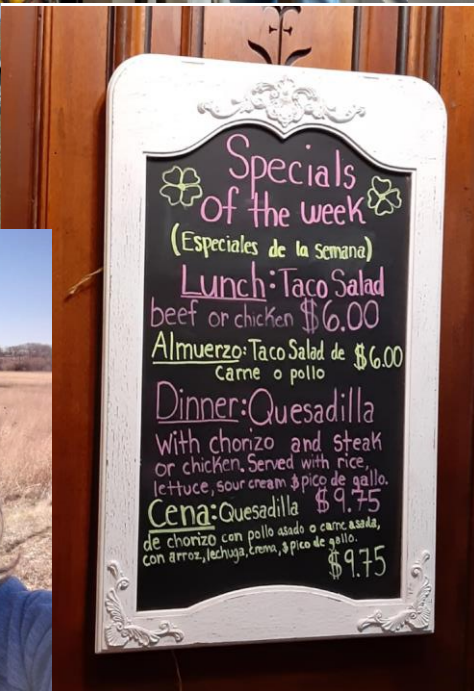 Specials
of the week
(Especiales de la Semana)
Lunch: Taco Salad
beef or chicken $6.00
Almuerzo: Taco Salad de $6.00
Carne o pollo
Dinner: Quesadilla
With chorizo and steak
or chicken. Served with rice,
lettuce, sour cream & pico de gallo.
$9.75
Cena: Quesadilla
de chorizo con pollo asado o carne asada,
con arroz, lechuga, crema, & pico de gallo.
$9.75